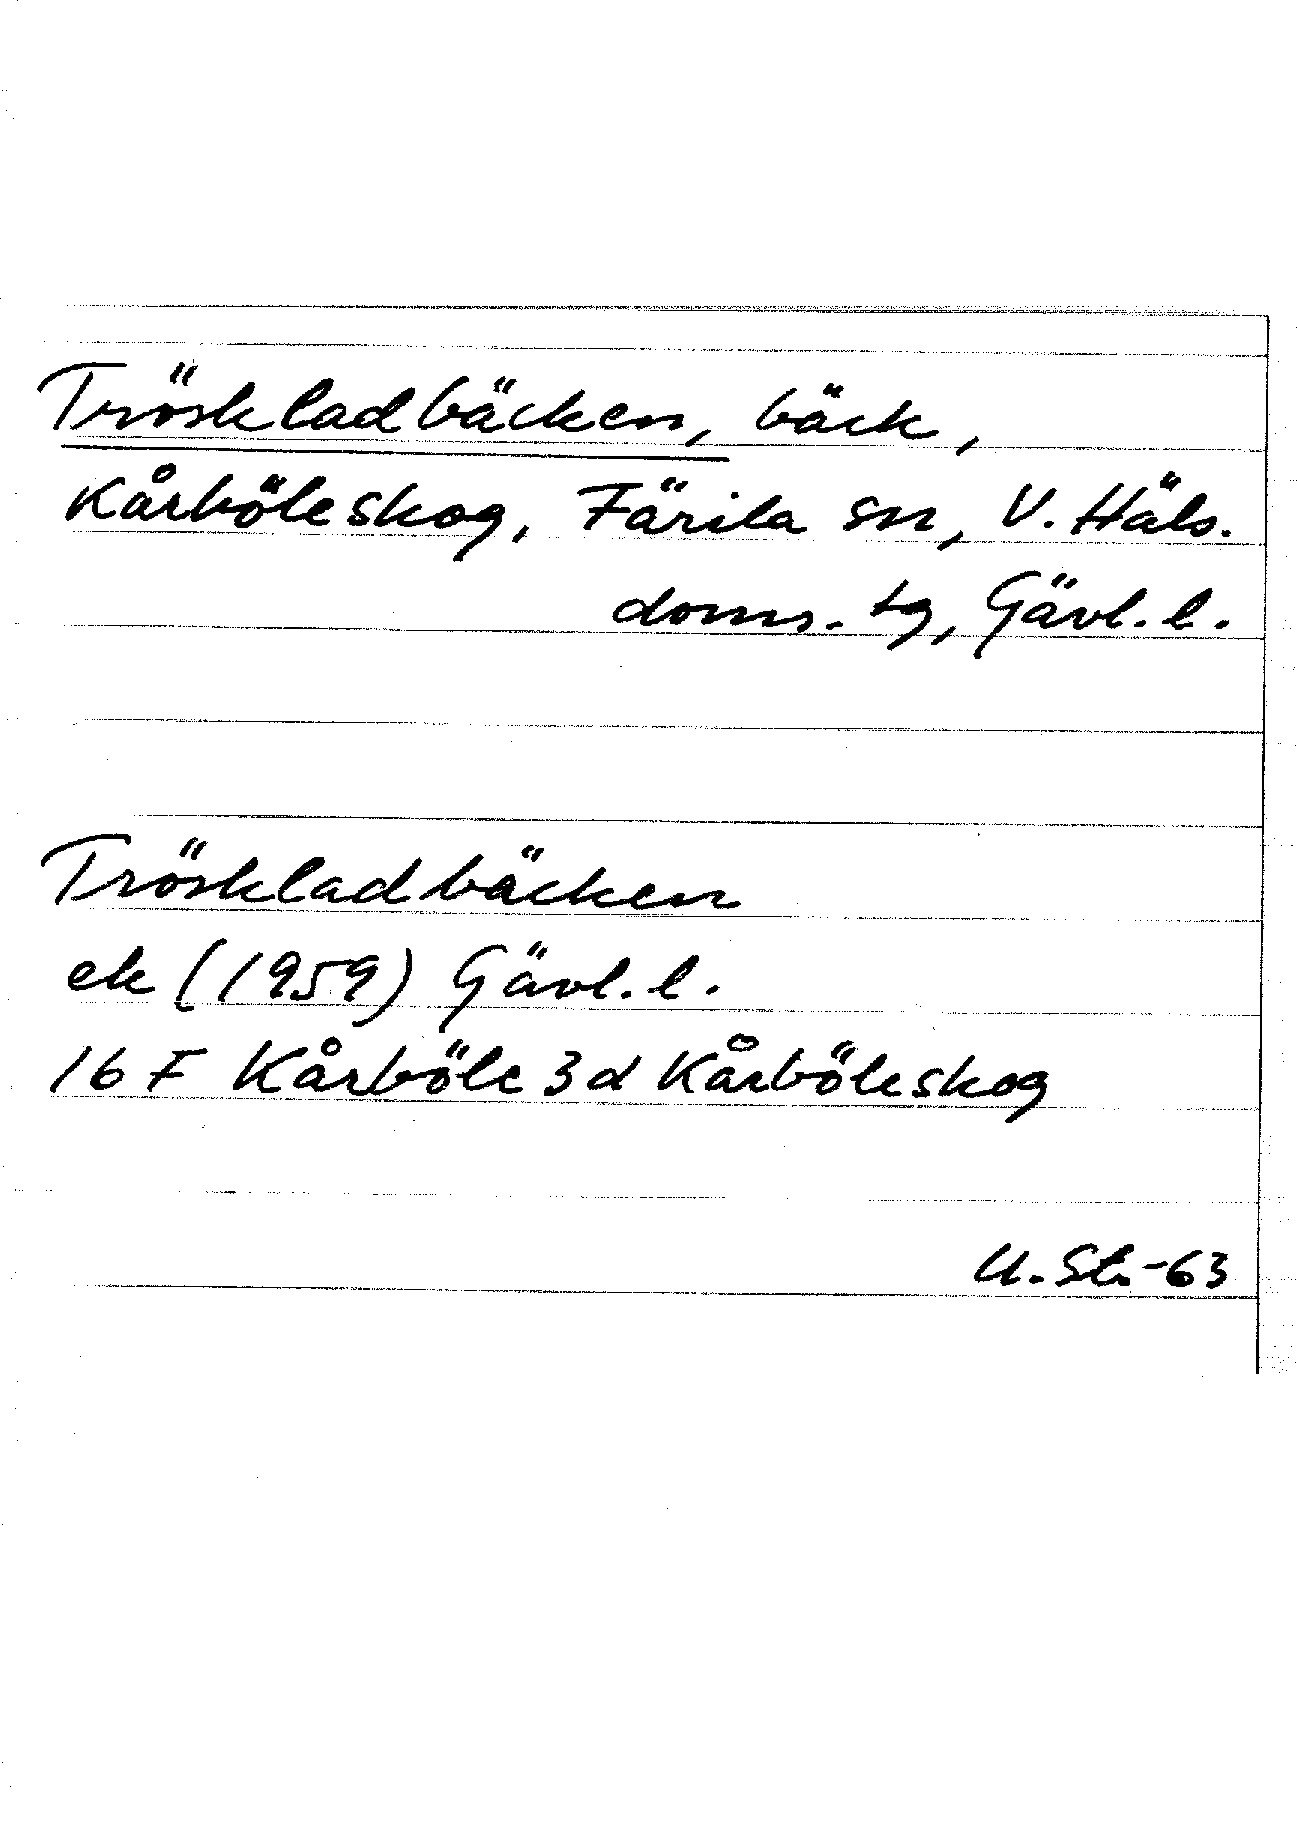 Tröskladbäcken, bäck,
Kårböleskog, Färila sn, V. Häls.
doms. tg, Gävl. l.
Tröskladbäcken
ek (1959) Gävl. l.
16 F Kårböle 3d Kårböleskog
U. St. -63